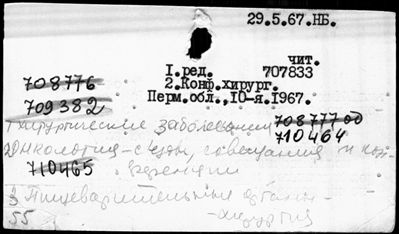 29.5.67.НБ.
чит.
1.ред. 707833
2.Конф.хирург.
Перм.обл.,10-я.1967.
708776
709382
1 Хирургические заболевания 708777 об
710464
2) Онкология - съезды, совещания и кон-
710465. ференции
3 Пищеварительные органы -
55 - хирургия